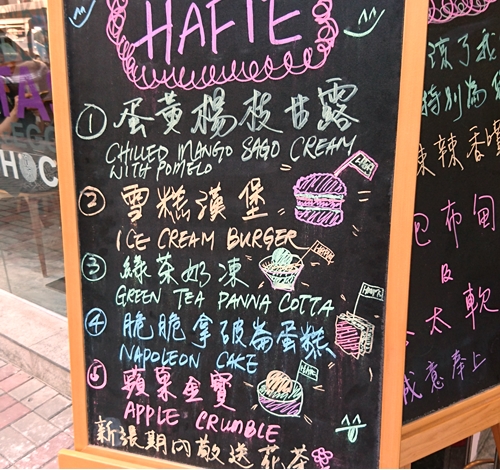 HAFTE
① 蛋黃楊枝甘露
CHILLED MANGO SAGO CREAM
WITH POMELO
② 雪糕漢堡
ICE CREAM BURGER
③ 綠茶奶凍
GREEN TEA PANNA COTTA
④ 脆脆拿破崙蛋糕
NAPOLEON CAKE
⑤ 蘋果金寶
APPLE CRUMBLE
新張期內敬送花茶
特別為
辣香
布甸
及
太軟
誠意奉上
HOC